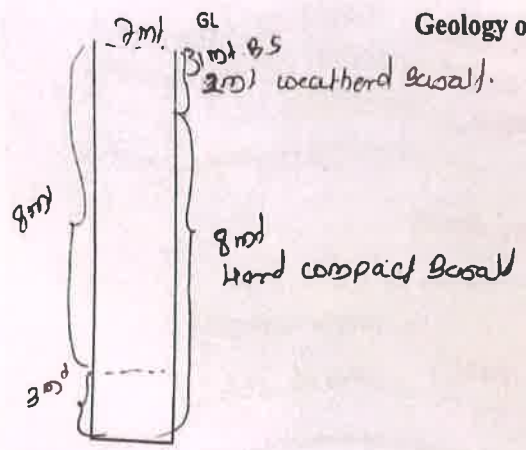 GL
Geology o
7mt
1mt BS
2mt weatherd Basalt.
8mt
8mt
Hard compact Basalt
3mt